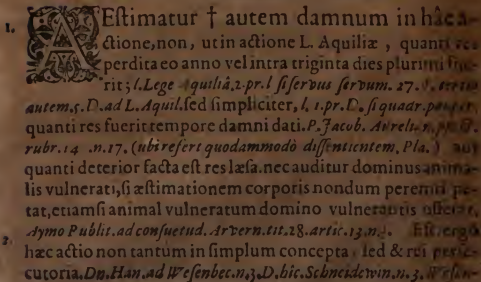 1. AEſtimatur † autem damnum in hâc a-
ctione, non, ut in actione L. Aquiliæ, quanti res
perdita eo anno vel intra triginta dies plurimi fue-
rit; l. Lege Aquiliâ, 2. pr. l. ſi ſervus ſervum. 27. §. tertio
autem. 5. D. ad L. Aquil. ſed ſimpliciter, l. 1. pr. D. ſi quadr. pauper.
quanti res fuerit tempore damni dati. P. Jacob. Aureli-
rubr. 14. n. 17. (ubi refert quodammodò diſſentientem, Pla.) aut
quanti deterior facta eſt res læſa. nec auditur dominus anima-
lis vulnerati, ſi æſtimationem corporis nondum perempti pe-
tat, etiamſi animal vulneratum domino vulnerantis offerat.
Aymo Publit. ad conſuetud. Arvern. tit. 28. artic. 13. n.
Eſt, ergo
2. hæc actio non tantum in ſimplum concepta, ſed & rei perſe-
cutoria. Dn. Han. ad Weſenbec. n. 3. D. hîc. Schneidewin. n. 3. Weſen-